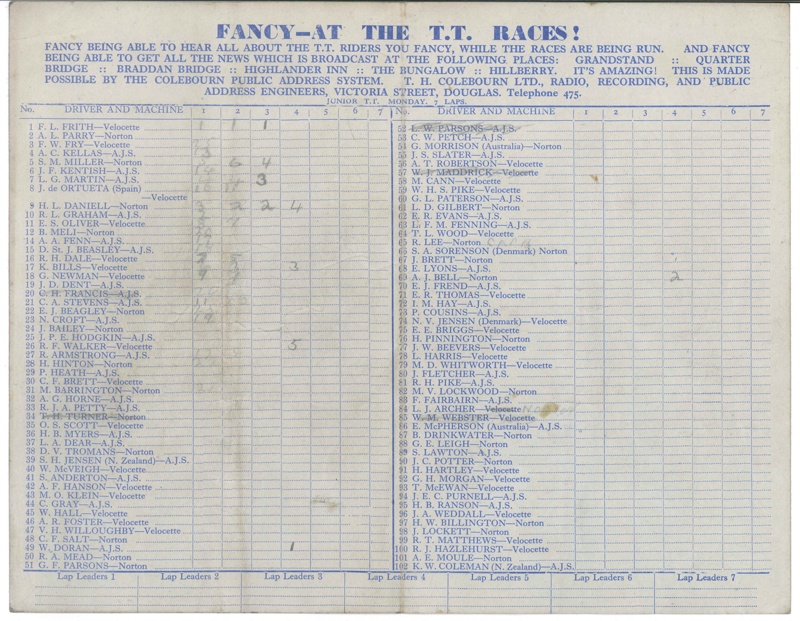 FANCY—AT THE T.T. RACES!
FANCY BEING ABLE TO HEAR ALL ABOUT THE T.T. RIDERS YOU FANCY, WHILE THE RACES ARE BEING RUN. AND FANCY
BEING ABLE TO GET ALL THE NEWS WHICH IS BROADCAST AT THE FOLLOWING PLACES: GRANDSTAND :: QUARTER
BRIDGE :: BRADDAN BRIDGE :: HIGHLANDER INN :: THE BUNGALOW :: HILLBERRY. IT'S AMAZING! THIS IS MADE
POSSIBLE BY THE COLEBOURN PUBLIC ADDRESS SYSTEM. T. H. COLEBOURN LTD., RADIO, RECORDING, AND PUBLIC
ADDRESS ENGINEERS, VICTORIA STREET, DOUGLAS. Telephone 475.
JUNIOR T.T. MONDAY. 7 LAPS.
No. DRIVER AND MACHINE 1 2 3 4 5 6 7
1 F. L. FRITH—Velocette 1 1 1
2 A. L. PARRY—Norton
3 F. W. FRY—Velocette
4 A. C. KELLAS—A.J.S.
5 S. M. MILLER—Norton 6 4
6 J. F. KENTISH—A.J.S.
7 L. G. MARTIN—A.J.S. 3
8 J. de ORTUETA (Spain)
—Velocette
9 H. L. DANIELL—Norton 3 2 2 4
10 R. L. GRAHAM—A.J.S.
11 E. S. OLIVER—Velocette
12 B. MELI—Norton
14 A. A. FENN—A.J.S.
15 D. St. J. BEASLEY—A.J.S.
16 R. H. DALE—Velocette
17 K. BILLS—Velocette 3
18 G. NEWMAN—Velocette
19 J. D. DENT—A.J.S.
20 C. H. FRANCIS—A.J.S.
21 C. A. STEVENS—A.J.S.
22 E. J. BEAGLEY—Norton
23 N. CROFT—A.J.S.
24 J. BAILEY—Norton
25 J. P. E. HODGKIN—A.J.S.
26 R. F. WALKER—Velocette 5
27 R. ARMSTRONG—A.J.S.
28 H. HINTON—Norton
29 P. HEATH—A.J.S.
30 C. F. BRETT—Velocette
31 M. BARRINGTON—Norton
32 A. G. HORNE—A.J.S.
33 R. J. A. PETTY—A.J.S.
34 T. H. TURNER—Norton
35 O. S. SCOTT—Velocette
36 H. B. MYERS—A.J.S.
37 L. A. DEAR—A.J.S.
38 D. V. TROMANS—Norton
39 S. H. JENSEN (N. Zealand)—A.J.S.
40 W. McVEIGH—Velocette
41 S. ANDERTON—A.J.S.
42 A. F. HANSON—Velocette
43 M. O. KLEIN—Velocette
44 C. GRAY—A.J.S.
45 W. HALL—Velocette
46 A. R. FOSTER—Velocette
47 V. H. WILLOUGHBY—A.J.S.
48 C. F. SALT—Norton
49 W. DORAN—A.J.S. 1
50 R. A. MEAD—Norton
51 G. F. PARSONS—Norton
No. DRIVER AND MACHINE 1 2 3 4 5 6 7
52 L. W. PARSONS—A.J.S.
53 C. W. PETCH—A.J.S.
54 G. MORRISON (Australia)—Norton
55 J. S. SLATER—A.J.S.
56 A. T. ROBERTSON—Velocette
57 W. J. MADDRICK—Velocette
58 M. CANN—Velocette
59 W. H. S. PIKE—Velocette
60 G. L. PATERSON—A.J.S.
61 L. D. GILBERT—Norton
62 E. R. EVANS—A.J.S.
63 L. F. M. FENNING—A.J.S.
64 T. L. WOOD—Velocette
65 R. LEE—Norton
66 S. A. SORENSON (Denmark) Norton
67 J. BRETT—Norton
68 E. LYONS—A.J.S.
69 A. J. BELL—Norton 2
70 E. J. FREND—A.J.S.
71 E. R. THOMAS—Velocette
72 I. M. HAY—A.J.S.
73 P. COUSINS—A.J.S.
74 N. V. JENSEN (Denmark)—Velocette
75 E. E. BRIGGS—Velocette
76 H. PINNINGTON—Norton
77 J. W. BEEVERS—Velocette
78 L. HARRIS—Velocette
79 M. D. WHITWORTH—Velocette
80 J. FLETCHER—A.J.S.
81 R. H. PIKE—A.J.S.
82 M. V. LOCKWOOD—Norton
83 F. FAIRBAIRN—A.J.S.
84 L. J. ARCHER—Velocette
85 W. M. WEBSTER—Velocette
86 E. McPHERSON (Australia)—A.J.S.
87 B. DRINKWATER—Norton
88 G. E. LEIGH—Norton
89 S. LAWTON—A.J.S.
90 J. C. POTTER—Norton
91 H. HARTLEY—Velocette
92 G. H. MORGAN—Velocette
93 T. McEWAN—Velocette
94 J. E. C. PURNELL—A.J.S.
95 H. B. RANSON—A.J.S.
96 J. A. WEDDALL—Velocette
97 H. W. BILLINGTON—Norton
98 J. LOCKETT—Norton
99 R. T. MATTHEWS—Velocette
100 R. J. HAZLEHURST—Velocette
101 A. E. MOULE—Norton
102 K. W. COLEMAN (N. Zealand)—A.J.S.
Lap Leaders 1 Lap Leaders 2 Lap Leaders 3 Lap Leaders 4 Lap Leaders 5 Lap Leaders 6 Lap Leaders 7